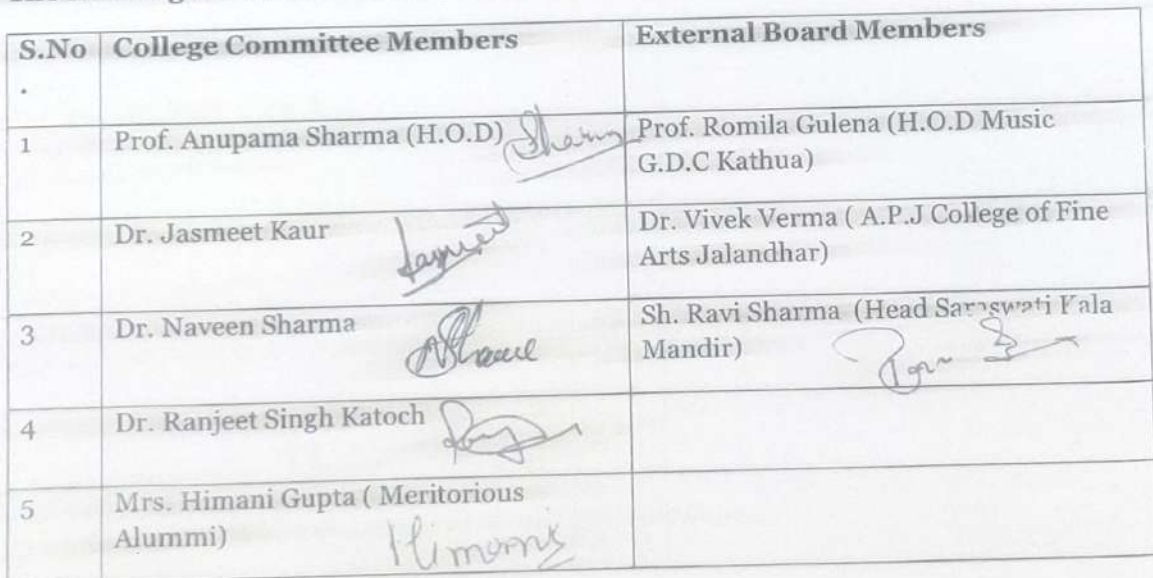 S.No College Committee Members External Board Members
.
1 Prof. Anupama Sharma (H.O.D) Sharma Prof. Romila Gulena (H.O.D Music
G.D.C Kathua)
2 Dr. Jasmeet Kaur Jasmeet Dr. Vivek Verma ( A.P.J College of Fine
Arts Jalandhar)
3 Dr. Naveen Sharma Sh. Ravi Sharma (Head Saraswati Kala
Mandir)
4 Dr. Ranjeet Singh Katoch
5 Mrs. Himani Gupta ( Meritorious
Alummi) Himani